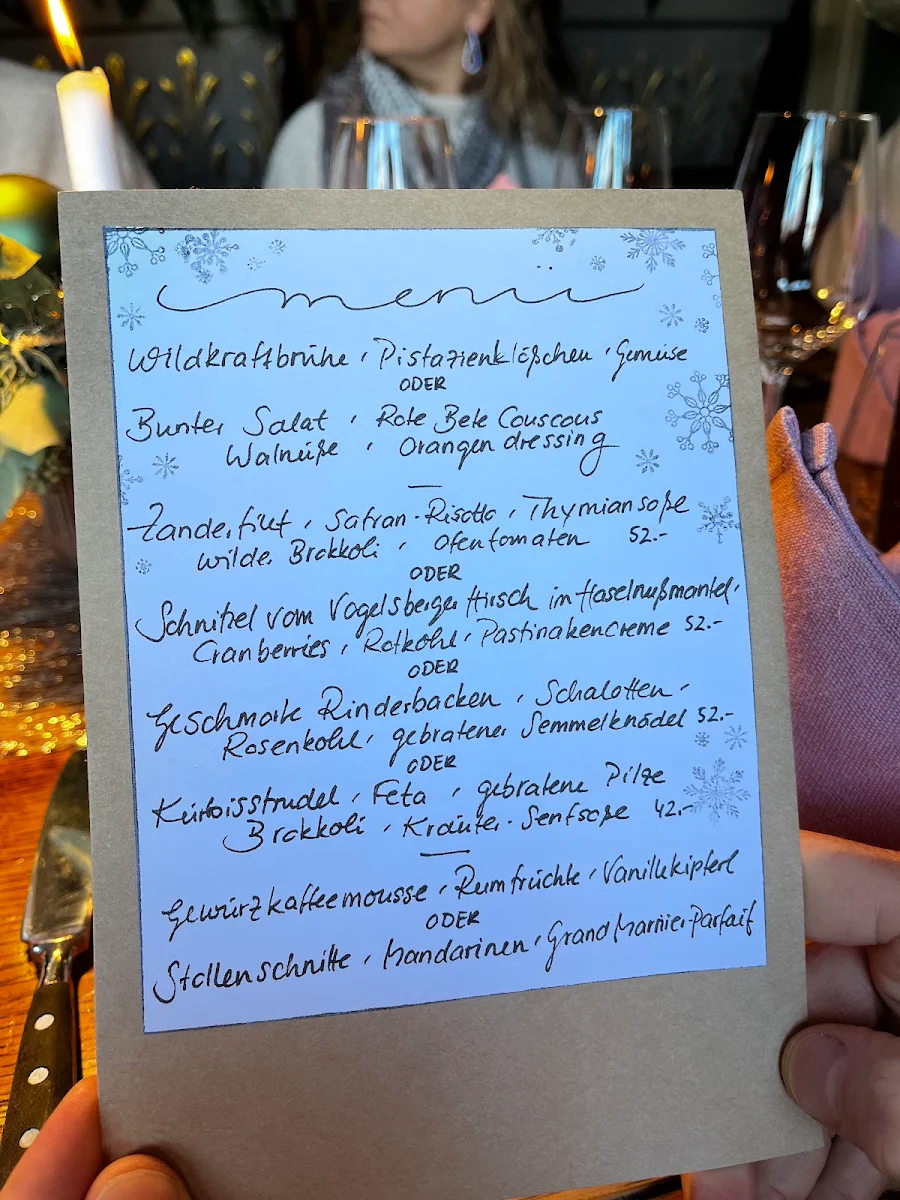 menü
Wildkraftbrühe, Pistazienklößchen, Gemüse
ODER
Bunter Salat, Rote Bete Couscous
Walnüße, Orangendressing
Zanderfilet, Safran-Risotto, Thymiansoße
wilder Brokkoli, Ofentomaten 52.-
ODER
Schnitzel vom Vogelsberger Hirsch im Haselnußmantel,
Cranberries, Rotkohl, Pastinakencreme 52.-
ODER
Geschmorte Rinderbacken, Schalotten,
Rosenkohl, gebratener Semmelknödel 52.-
ODER
Kürbisstrudel, Feta, gebratene Pilze
Brokkoli, Kräuter-Senfsoße 42.-
Gewürzkaffeemousse, Rumfrüchte, Vanillekipferl
ODER
Stollenschnitte, Mandarinen, Grand Marnier Parfait